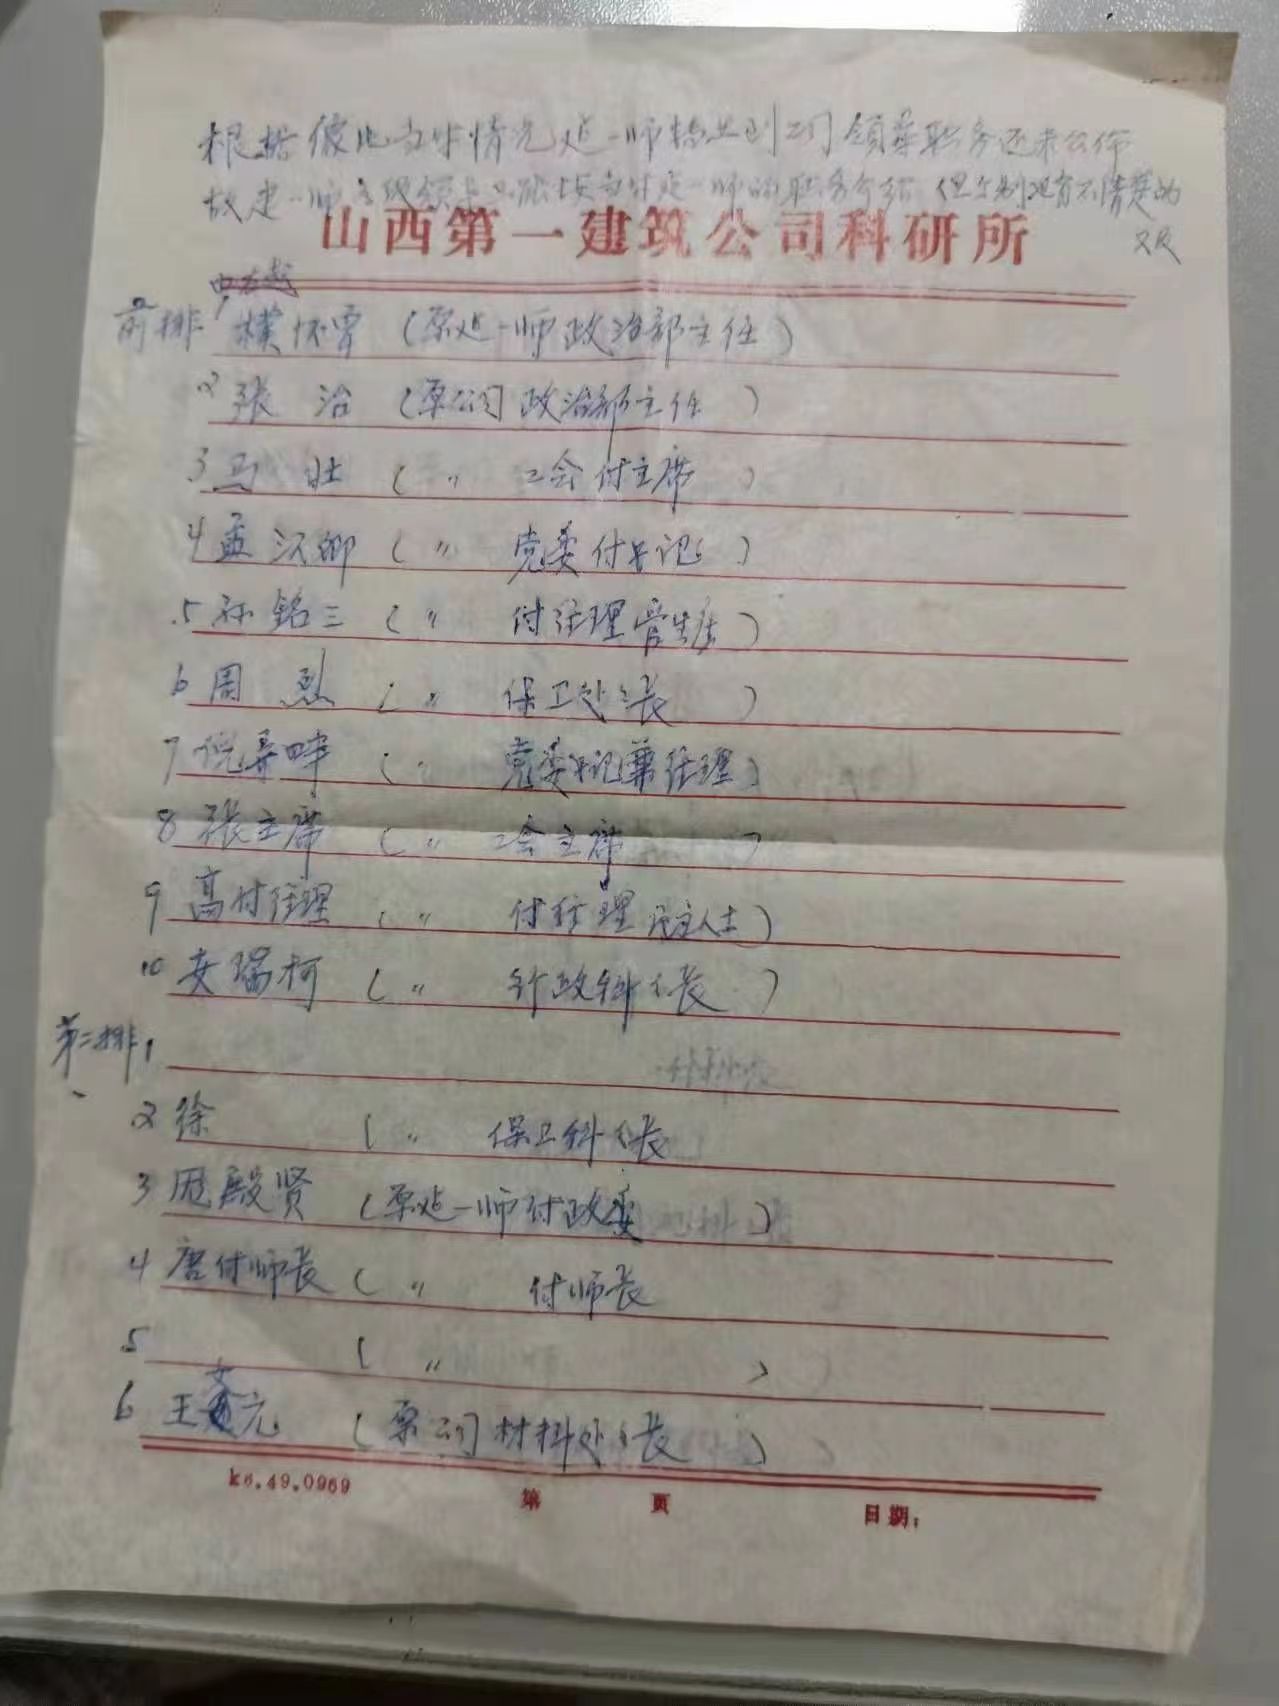 根据像片当时情况建一师转业到公司领导职务还未公布
故建一师各级领导只能按当时建一师的职务介绍 但个别还有不清楚的
山西第一建筑公司科研所
由左起
前排 1 (原建一师政治部主任)
2 张 治 (原公司政治部主任 )
3 马 壮 ( 〃 工会付主席 )
4 孟汉卿 ( 〃 党委付书记 )
5 孙铭三 ( 〃 付经理管生产)
6 周 烈 ( 〃 保卫处处长 )
7 倪 ( 〃 党委书记兼经理)
8 张主席 ( 〃 工会主席 )
9 高付经理 ( 〃 付经理 民主人士)
10 安瑞柯 ( 〃 行政科科长 )
第二排 1
2 徐 ( 〃 保卫科科长
3 殿贤 (原建一师付政委 )
4 唐付师长 ( 〃 付师长
5 ( 〃 )
6 王文元 (原公司材料处处长 )
k6.49.0969 第 页 日期: